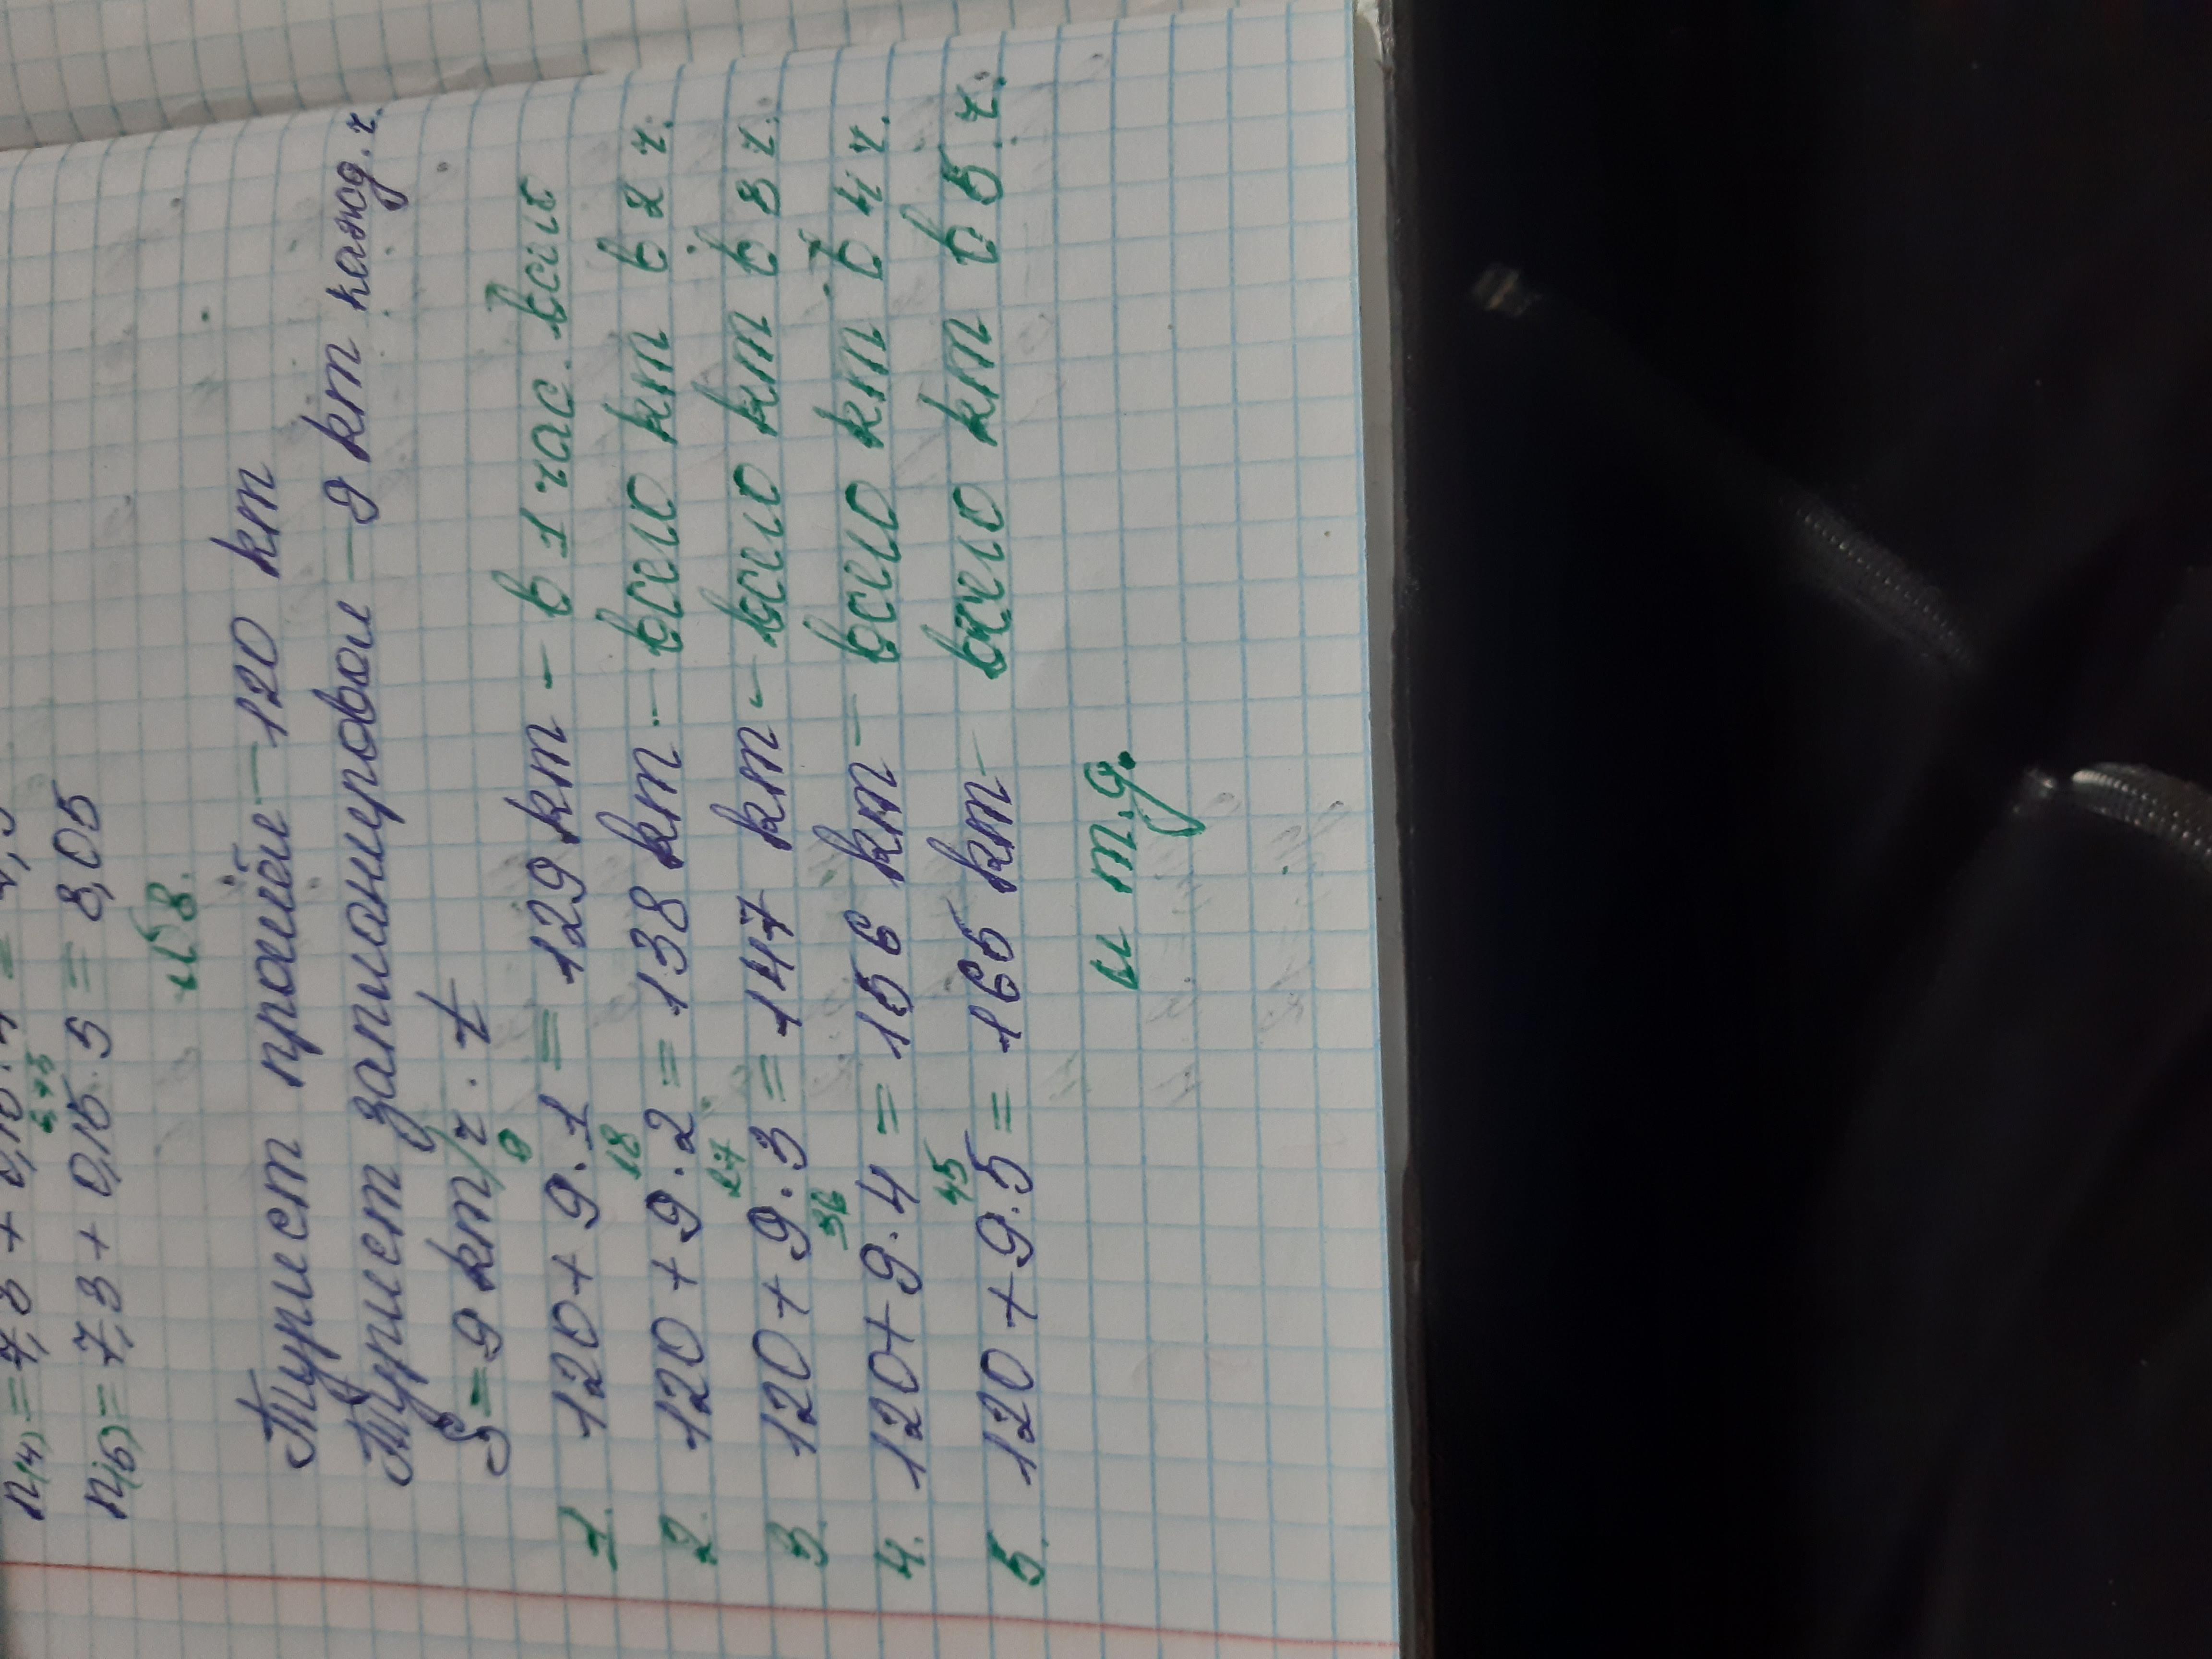 n(4) = 7,3 + 0,15 · 4 =
n(5) = 7,3 + 0,15 · 5 = 8,05
№8.
Турист прошёл — 120 km
Турист запланировал — 9 km кажд. ч.
S = 9 km/ч · t
9
1. 120 + 9 · 1 = 129 km — в 1 час.
18
2. 120 + 9 · 2 = 138 km — всего km в 2 ч.
27
3. 120 + 9 · 3 = 147 km — всего km в 3 ч.
36
4. 120 + 9 · 4 = 156 km — всего km в 4 ч.
45
5. 120 + 9 · 5 = 165 km — всего km в 5 ч.
и т.д.